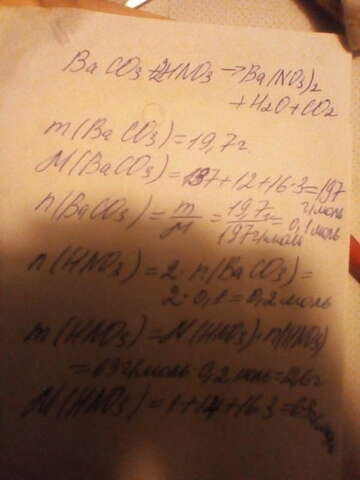 BaCO3+2HNO3→Ba(NO3)2
+H2O+CO2
m(BaCO3)=19,7г
M(BaCO3)=137+12+16·3=197
г/моль
n(BaCO3)=m/M=19,7г/197г/моль=0,1моль
n(HNO3)=2·n(BaCO3)=
2·0,1=0,2моль
m(HNO3)=M(HNO3)·n(HNO3)
=63г/моль·0,2моль=12,6г
M(HNO3)=1+14+16·3=63г/моль